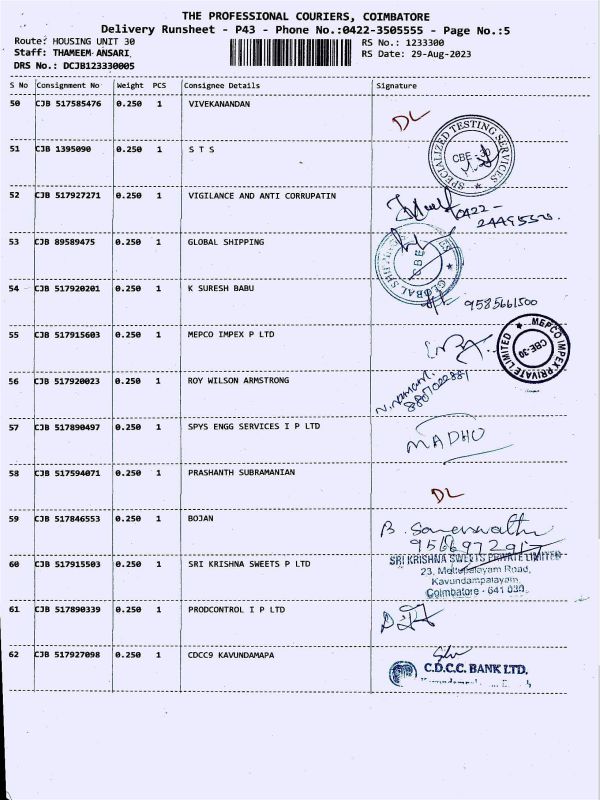 THE PROFESSIONAL COURIERS, COIMBATORE
Delivery Runsheet - P43 - Phone No.:0422-3505555 - Page No.:5
Route: HOUSING UNIT 30 RS No.: 1233300
Staff: THAMEEM ANSARI. RS Date: 29-Aug-2023
DRS No.: DCJB123330005
S No Consignment No Weight PCS Consignee Details Signature
50 CJB 517585476 0.250 1 VIVEKANANDAN
DL
51 CJB 1395090 0.250 1 S T S
SPECIALIZED TESTING SERVICES
CBE - 30
52 CJB 517927271 0.250 1 VIGILANCE AND ANTI CORRUPATIN
0422-
53 CJB 89589475 0.250 1 GLOBAL SHIPPING
GLOBAL
CBE
54 CJB 517920201 0.250 1 K SURESH BABU
9585661500
55 CJB 517915603 0.250 1 MEPCO IMPEX P LTD
MEPCO IMPEX PRIVATE LIMITED
CBE-30
56 CJB 517920023 0.250 1 ROY WILSON ARMSTRONG
57 CJB 517890497 0.250 1 SPYS ENGG SERVICES I P LTD
MADHU
58 CJB 517594071 0.250 1 PRASHANTH SUBRAMANIAN
DL
59 CJB 517846553 0.250 1 BOJAN
60 CJB 517915503 0.250 1 SRI KRISHNA SWEETS P LTD
SRI KRISHNA SWEETS PRIVATE LIMITED
23, Mettupalayam Road,
Kavundampalayam,
Coimbatore - 641 030.
61 CJB 517890339 0.250 1 PRODCONTROL I P LTD
62 CJB 517927098 0.250 1 CDCC9 KAVUNDAMAPA
C.D.C.C. BANK LTD.